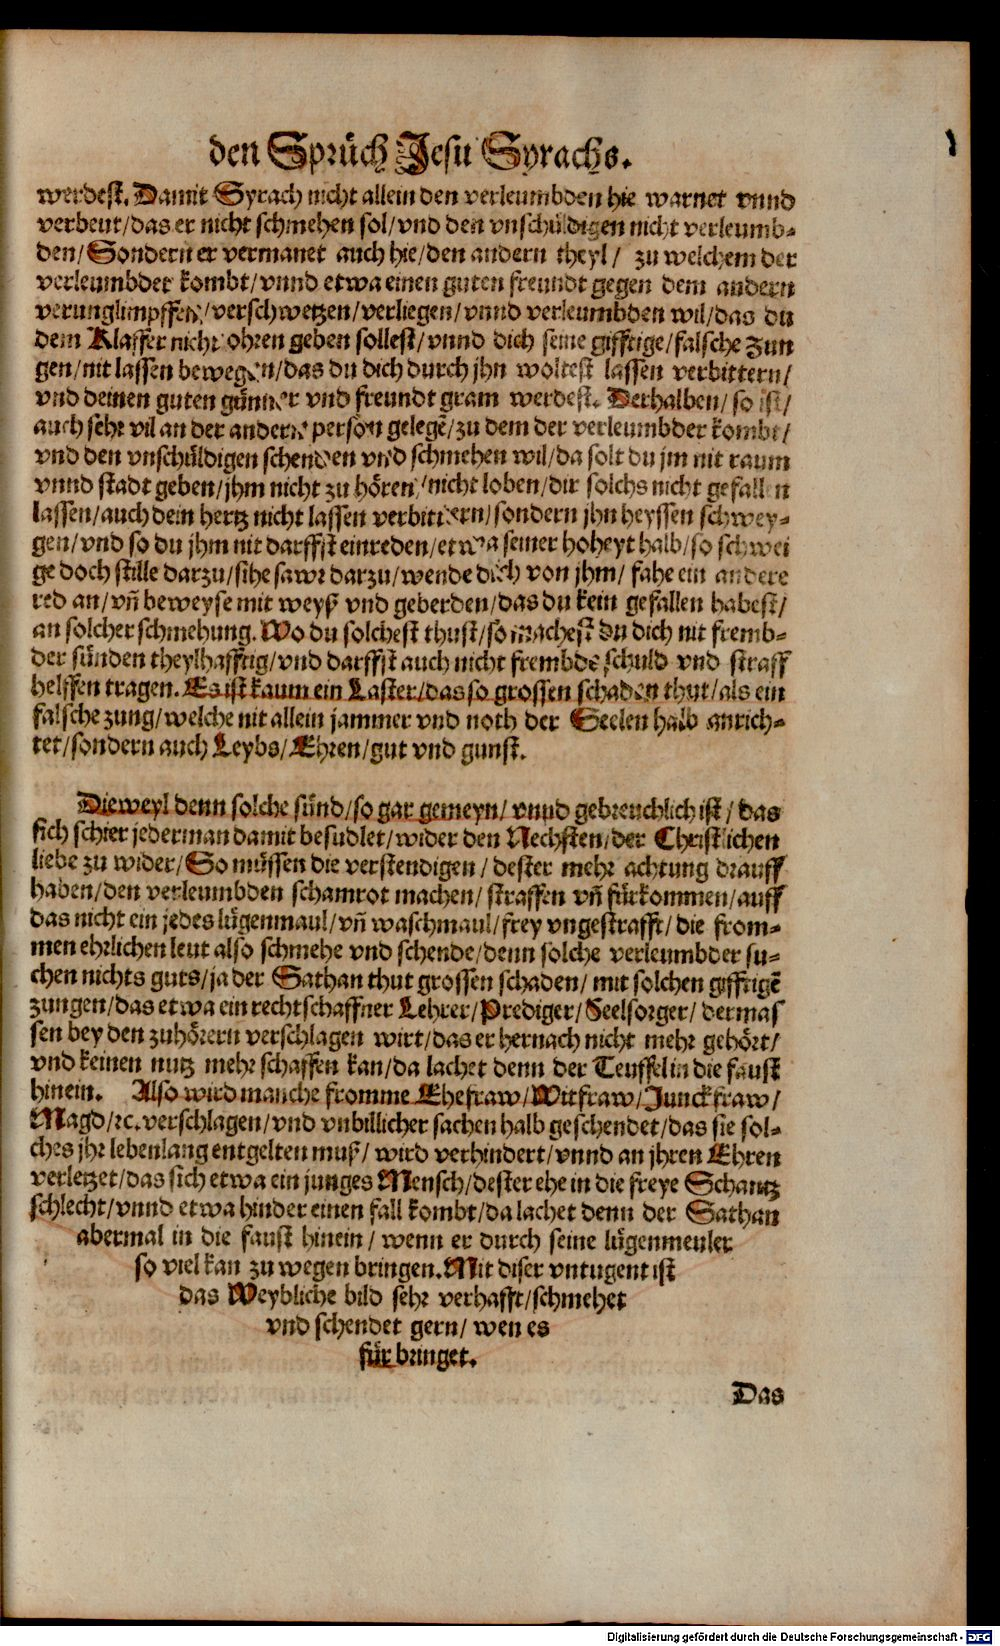 den Sprüch Jesu Syrachs.
werdest. Damit Syrach nicht allein den verleumbden hie warnet vnnd
verbeut/das er nicht schmehen sol/vnd den vnschüldigen nicht verleumb-
den/Sondern er vermanet auch hie/den andern theyl/ zu welchem der
verleumbder kombt/vnnd etwa einen guten freundt gegen dem andern
verunglimpffen/verschwetzen/verliegen/vnnd verleumbden wil/das du
dem Klaffer nicht ohren geben sollest/vnnd dich seine gifftige/falsche Zun
gen/nit lassen bewegen/das du dich durch jhn woltest lassen verbittern/
vnd deinen guten günner vnd freundt gram werdest. Derhalben/so ist/
auch sehr vil an der andern person gelegē/zu dem der verleumbder kombt/
vnd den vnschüldigen schenden vnd schmehen wil/da solt du jm nit raum
vnnd stadt geben/jhm nicht zu hören/nicht loben/dir solchs nicht gefallen
lassen/auch dein hertz nicht lassen verbittern/sondern jhn heyssen schwey-
gen/vnd so du jhm nit darffst einreden/etwa seiner hoheyt halb/so schwei
ge doch stille darzu/sihe sawr darzu/wende dich von jhm/ fahe ein andere
red an/vñ beweyse mit weyß vnd geberden/das du kein gefallen habest/
an solcher schmehung. Wo du solchest thust/so machest du dich nit fremb-
der sünden theylhafftig/vnd darffst auch nicht frembde schuld vnd straff
helffen tragen. Es ist kaum ein Laster/das so grossen schaden thut/als ein
falsche zung/welche nit allein jammer vnd noth der Seelen halb anrich-
tet/sondern auch Leybs/Ehren/gut vnd gunst.
Dieweyl denn solche sünd/so gar gemeyn/ vnnd gebreuchlich ist/ das
sich schier jederman damit besudlet/wider den Nechsten/der Christlichen
liebe zu wider/So müssen die verstendigen/ dester mehr achtung drauff
haben/den verleumbden schamrot machen/ straffen vñ fürkommen/auff
das nicht ein jedes lügenmaul/vñ waschmaul/frey vngestrafft/die from-
men ehrlichen leut also schmehe vnd schende/denn solche verleumbder su-
chen nichts guts/ja der Sathan thut grossen schaden/ mit solchen gifftigē
zungen/das etwa ein rechtschaffner Lehrer/Prediger/Seelsorger/ dermas
sen bey den zuhörern verschlagen wirt/das er hernach nicht mehr gehört/
vnd keinen nutz mehr schaffen kan/da lachet denn der Teuffel in die faust
hinein. Also wird manche fromme Ehefraw/Witfraw/Junckfraw/
Magd/ꝛc. verschlagen/vnd vnbillicher sachen halb geschendet/das sie sol-
ches jhr lebenlang entgelten muß/ wird verhindert/vnnd an jhren Ehren
verletzet/das sich etwa ein junges Mensch/dester ehe in die freye Schantz
schlecht/vnnd etwa hinder einen fall kombt/da lachet denn der Sathan
abermal in die faust hinein/ wenn er durch seine lügenmeuler
so viel kan zu wegen bringen. Mit diser vntugent ist
das Weybliche bild sehr verhafft/schmehet
vnd schendet gern/ wen es
für bringet.
Das
Digitalisierung gefördert durch die Deutsche Forschungsgemeinschaft - DFG